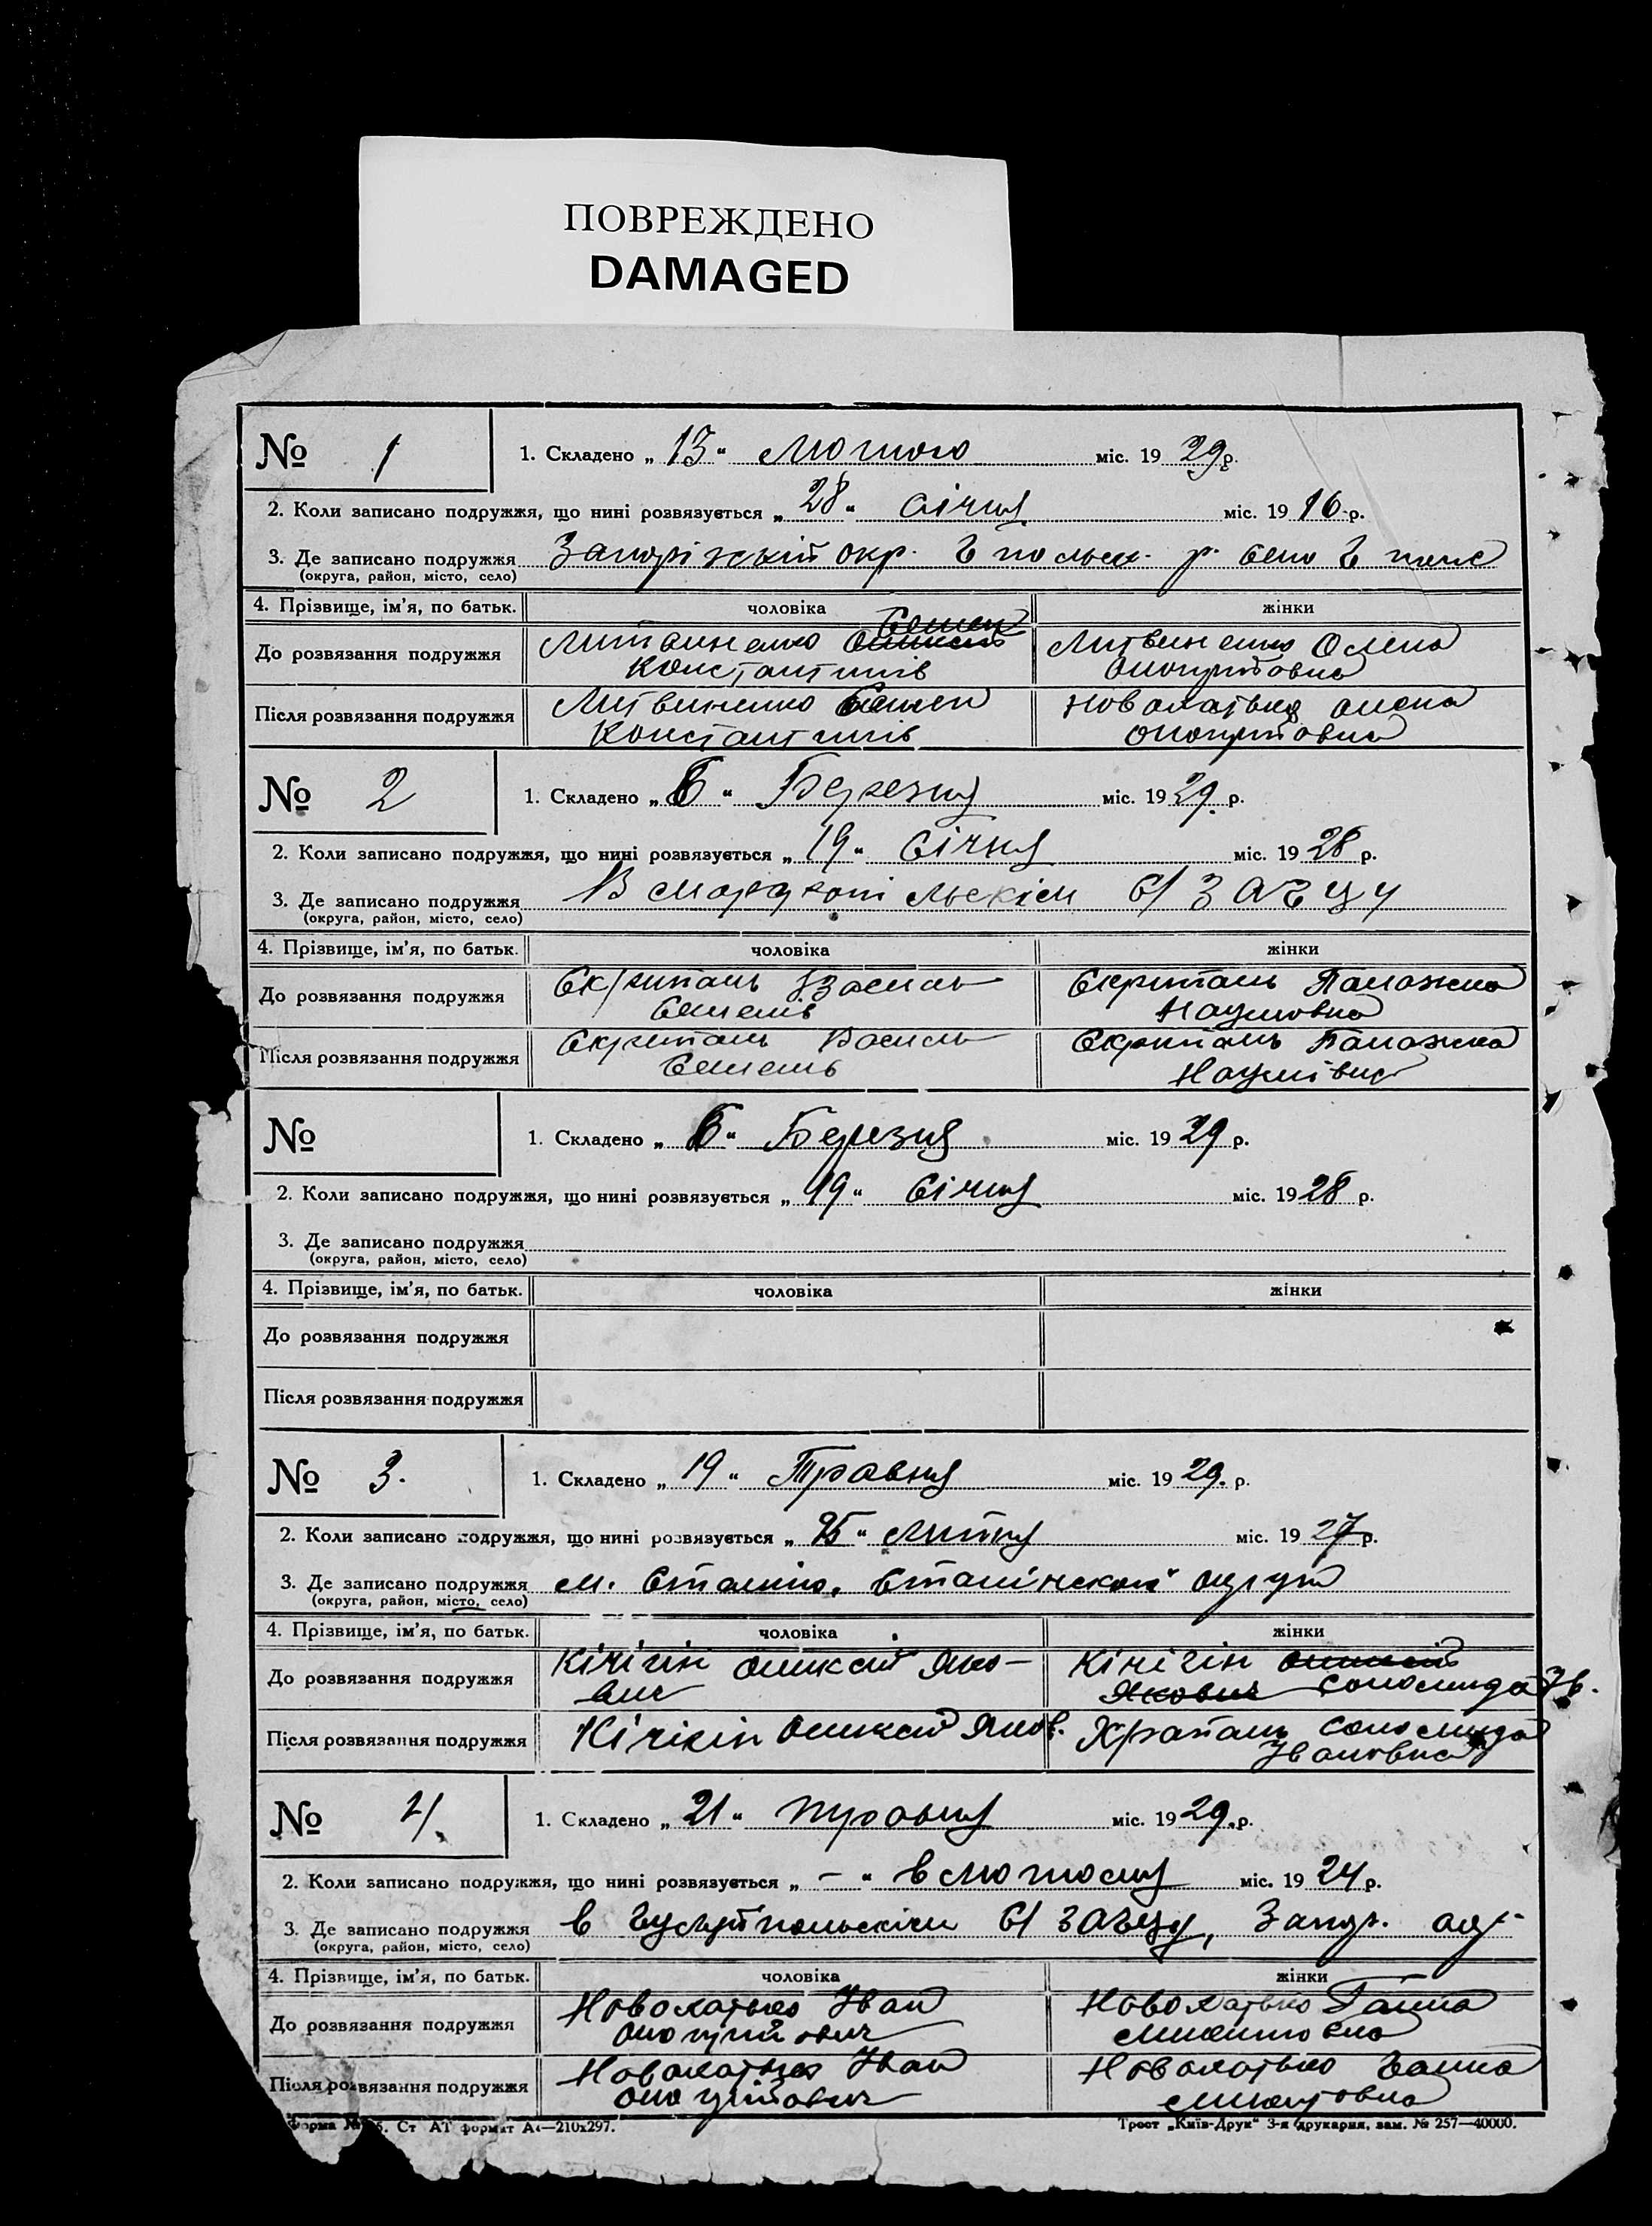 ПОВРЕЖДЕНО
DAMAGED
№ 1
1. Складено „13“ Лютого міс. 1929 р.
2. Коли записано подружжя, що нині розвязується „28“ Січня міс. 1916 р.
3. Де записано подружжя Запорізькій окр. р. село
(округа, район, місто, село)
4. Прізвище, ім'я, по батьк. чоловіка жінки
Семен
До розвязання подружжя Литвиненко Литвиненко Олена
Константинів Оноприївна
Після розвязання подружжя Литвиненко Семен Новохатько Олена
Константинів Оноприївна
№ 2
1. Складено „6“ Березня міс. 1929 р.
2. Коли записано подружжя, що нині розвязується „19“ Січня міс. 1928 р.
3. Де записано подружжя В С/ЗАГЦУ
(округа, район, місто, село)
4. Прізвище, ім'я, по батьк. чоловіка жінки
До розвязання подружжя Скрипаль Василь Скрипаль Паложка
Семенів Наумовна
Після розвязання подружжя Скрипаль Василь Скрипаль Паложка
Семенів Наумівна
№
1. Складено „6“ Березня міс. 1929 р.
2. Коли записано подружжя, що нині розвязується „19“ Січня міс. 1928 р.
3. Де записано подружжя
(округа, район, місто, село)
4. Прізвище, ім'я, по батьк. чоловіка жінки
До розвязання подружжя
Після розвязання подружжя
№ 3.
1. Складено „19“ Травня міс. 1929. р.
2. Коли записано подружжя, що нині розвязується „25“ Липня міс. 1927 р.
3. Де записано подружжя м. Сталіно, Сталінскої округи
(округа, район, місто, село)
4. Прізвище, ім'я, по батьк. чоловіка жінки
До розвязання подружжя Кірігін Олексій Яко- Кірігін Олексій
вич Якович Соломида Ів.
Після розвязання подружжя Кірікін Олексій Яков. Храпаль Соломида
Івановна
№ 4.
1. Складено „21“ травня міс. 1929. р.
2. Коли записано подружжя, що нині розвязується „–“ в лютому міс. 1924 р.
3. Де записано подружжя в Гуляйпольскім С/ЗАГЦУ, Запор. окр.
(округа, район, місто, село)
4. Прізвище, ім'я, по батьк. чоловіка жінки
До розвязання подружжя Новохатько Іван Новохатько Ганна
Оноприйович Микитовна
Після розвязання подружжя Новохатько Іван Новохатько Ганна
Оноприйович Микитовна
Форма № 5. Ст АТ формат А4—210x297. Трест „Київ-Друк“ 3-я друкарня, зам. № 257—40000.